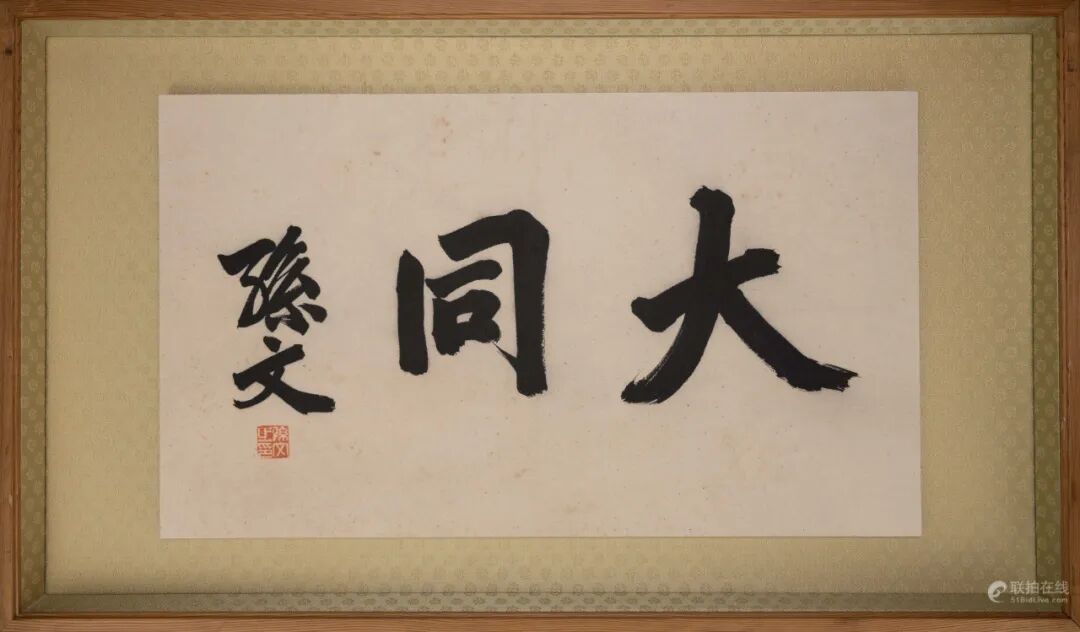 大同
孫文
孫文之印
联拍在线
51BidLive.com